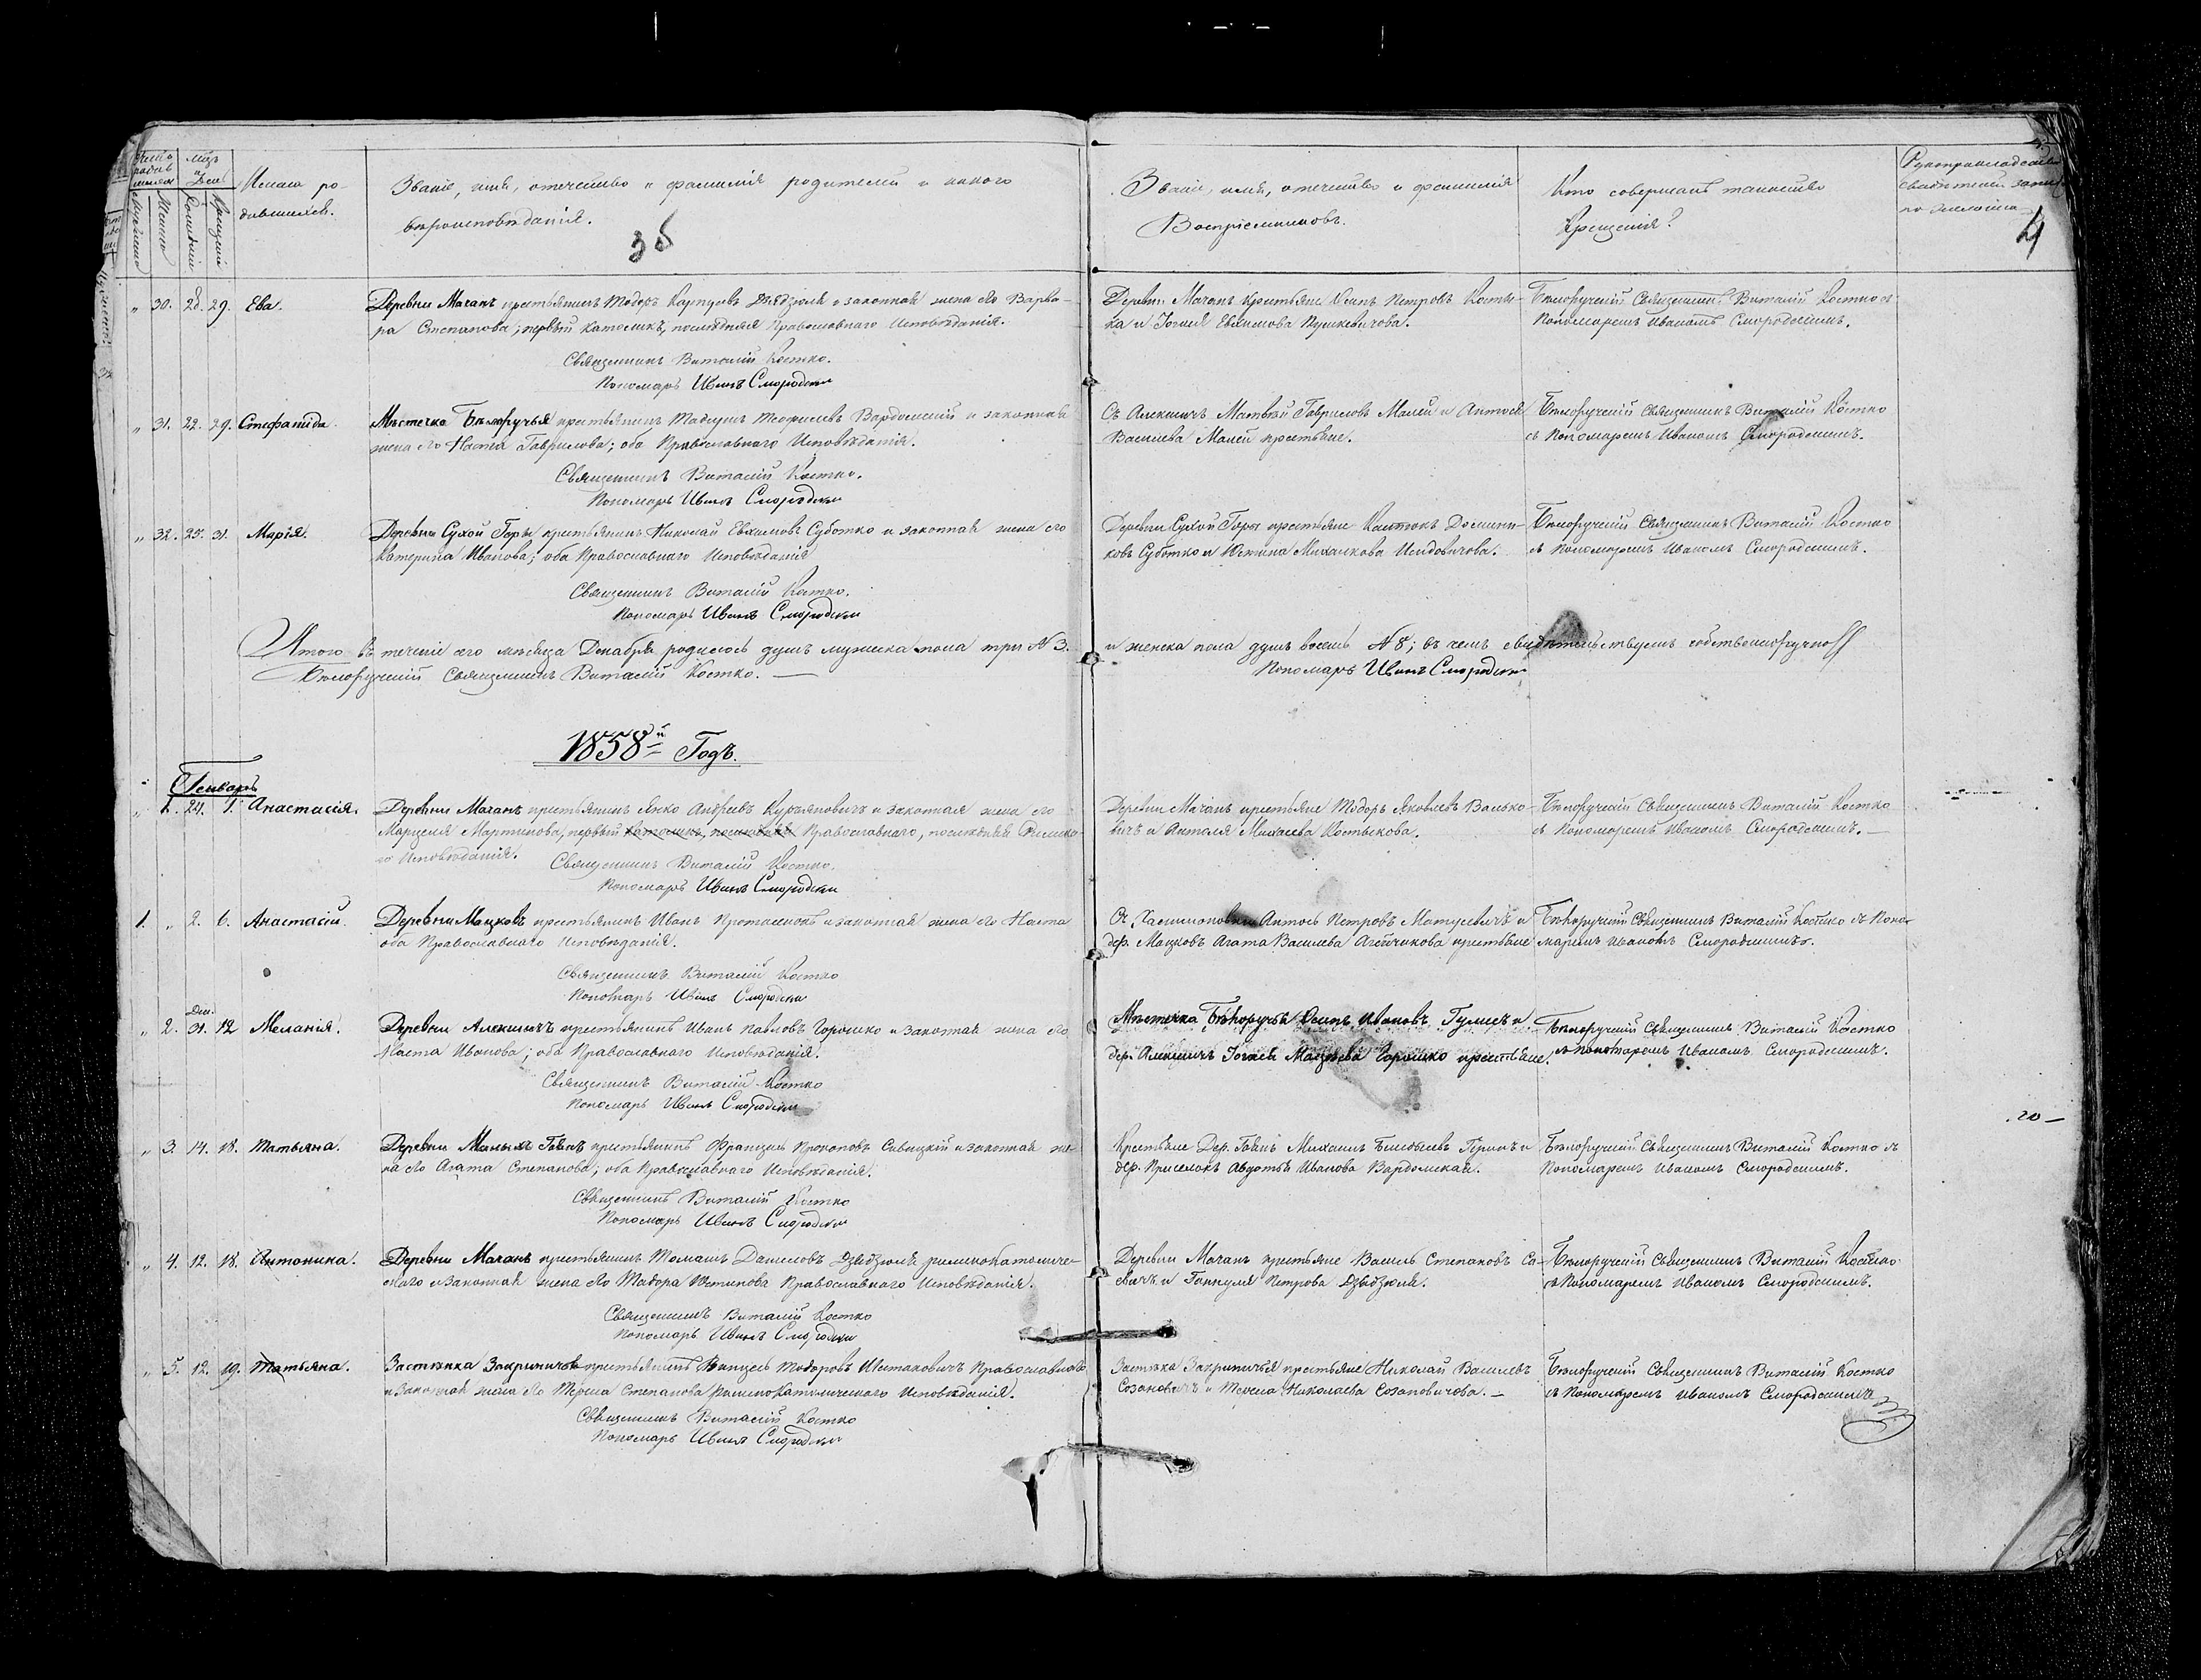 Мѣс. и День
Имена родившихся.
Званіе, имя, отечество и фамилія родителей и какого
вѣроисповѣданія.
Званіе, имя, отечество и фамилія
Воспріемниковъ.
Кто совершалъ таинство
Крещенія?
Рукоприкладство
свидѣтелей записи
по желанію
4
„ 30. 28. 29. Ева.
Деревни Мачанъ крестьянинъ Тодоръ Карпувъ Дзѣдзюля и законная жена его Варва-
ра Степанова; первый католикъ, послѣдняя Православнаго Исповѣданія.
Священникъ Виталій Костко.
Пономарь Иванъ Смородскій
Деревни Мачанъ крестьяне Осипъ Петровъ
и Евхимова Пушкевичова.
Бѣлоручскій Священникъ Виталій Костко съ
Пономаремъ Иваномъ Смородскимъ.
„ 31. 22. 29. Стефанида.
Мѣстечка Бѣлоручья крестьянинъ Вардомскій и законная
жена его Наста Гаврилова; оба Православнаго Исповѣданія.
Священникъ Виталій Костко.
Пономарь Иванъ Смородскій
Матвѣй Гавриловъ Малей и Антося
Васильева Малей крестьяне.
Бѣлоручскій Священникъ Виталій Костко
съ Пономаремъ Иваномъ Смородскимъ.
„ 32. 25. 31. Марія.
Деревни Сухой Горы крестьянинъ Николай Евхимовъ Суботко и законная жена его
Катерина Иванова; оба Православнаго Исповѣданія
Священникъ Виталій Костко.
Пономарь Иванъ Смородскій
Деревни Сухой Горы крестьяне Домини-
ковъ Суботко и Юстина
Бѣлоручскій Священникъ Виталій Костко
съ Пономаремъ Иваномъ Смородскимъ.
Итого въ теченіе сего мѣсяца Декабря родилось душъ мужеска пола три № 3.
и женска пола душъ восемь № 8; въ чемъ свидѣтельствуемъ собственноручно
Бѣлоручскій Священникъ Виталій Костко.
Пономарь Иванъ Смородскій
1858й Годъ.
Генварь
„ 1. 24. 1. Анастасія.
Деревни Мачанъ крестьянинъ Янко Андреевъ Курьяновичъ и законная жена его
Марцеля Мартинова, первый католикъ, послѣдняя Православнаго, послѣдняя Римско-
го Исповѣданія.
Священникъ Виталій Костко.
Пономарь Иванъ Смородскій
Деревни Мачанъ крестьяне Тодоръ Яковлевъ Валько-
вичъ и Антоля Костыкова.
Бѣлоручскій Священникъ Виталій Костко
съ Пономаремъ Иваномъ Смородскимъ.
1. „ 2. 6. Анастасій.
Деревни Мацковъ крестьянинъ Иванъ и законная жена его Наста
оба Православнаго Исповѣданія.
Священникъ Виталій Костко
Пономарь Иванъ Смородскій
Антось Петровъ Матусевичъ и
дер. Мацковъ Агата Васильева крестьяне
Бѣлоручскій Священникъ Виталій Костко съ Поно-
маремъ Иваномъ Смородскимъ.
Дек.
„ 2. 31. 12 Меланія.
Деревни Алекшичъ крестьянинъ Иванъ Павловъ Горошко и законная жена его
Наста Иванова; оба Православнаго Исповѣданія.
Священникъ Виталій Костко
Пономарь Иванъ Смородскій
Мѣстечка Бѣлоручья Осипъ Ивановъ и
дер. Алекшичъ Горошко крестьяне.
Бѣлоручскій Священникъ Виталій Костко
съ Пономаремъ Иваномъ Смородскимъ.
20 —
„ 3. 14. 18. Татьяна.
Деревни Малыхъ Гаянъ крестьянинъ Францъ Прокоповъ Савицкій и законная же-
на его Агата Степанова; оба Православнаго Исповѣданія.
Священникъ Виталій Костко
Пономарь Иванъ Смородскій
Крестьяне Дер. Гаянъ Михаилъ и
дер. Приселокъ Авдотья Иванова Вардомская.
Бѣлоручскій Священникъ Виталій Костко съ
Пономаремъ Иваномъ Смородскимъ.
„ 4. 12. 18. Антонина.
Деревни Мачанъ крестьянинъ Томашъ Даниловъ Дзѣдзюля римскокатоличе-
скаго и законная жена его Тодора Устинова Православнаго Исповѣданія.
Священникъ Виталій Костко
Пономарь Иванъ Смородскій
Деревни Мачанъ крестьяне Василь Степановъ Са-
вичъ и Ганнуля Петрова Дзѣдзюля.
Бѣлоручскій Священникъ Виталій Костко
съ Пономаремъ Иваномъ Смородскимъ.
„ 5. 12. 19. Татьяна.
Застѣнка Закриничья крестьянинъ Винцесь Тодоровъ Шитаковичъ Православнаго
и законная жена его Тереса Степанова Римскокатолическаго Исповѣданія.
Священникъ Виталій Костко
Пономарь Иванъ Смородскій
Застѣнка Закриничья крестьяне Николай Васильевъ
Созановичъ и Тереса Николаева Созановичова.
Бѣлоручскій Священникъ Виталій Костко
съ Пономаремъ Иваномъ Смородскимъ